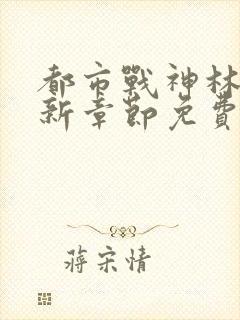 都市戰神林
新章節免費
蔣宋情